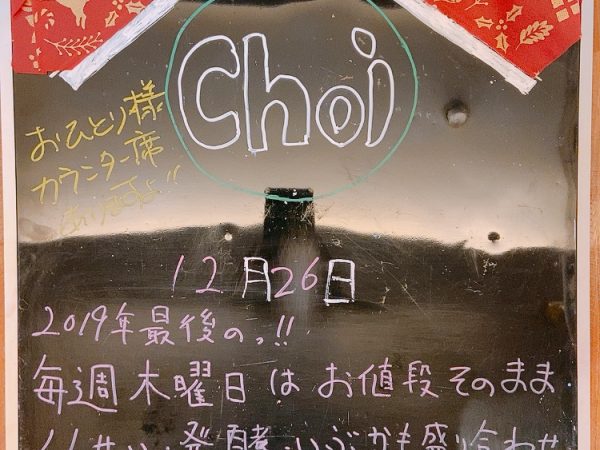 Choi
おひとり様
カウンター席
あります!!
12月26日
2019年最後のっ!!
毎週木曜日はお値段そのまま
盛り合わせ